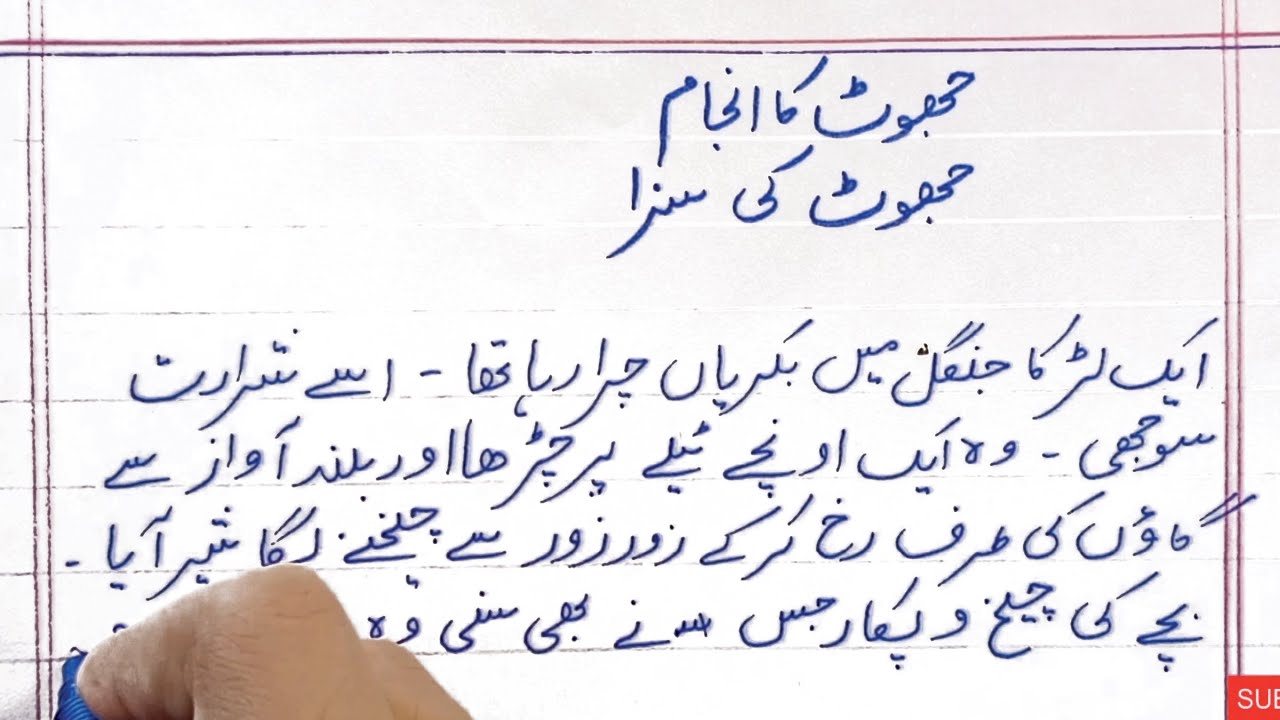 جھوٹ کا انجام
جھوٹ کی سزا
ایک لڑکا جنگل میں بکریاں چرا رہا تھا - اسے شرارت
سوجھی - وہ ایک اونچے ٹیلے پر چڑھا اور بلند آواز سے
گاؤں کی طرف رخ کر کے زور زور سے چیخنے لگا شیر آیا -
بچے کی چیخ و پکار جس نے بھی سنی وہ
SUB